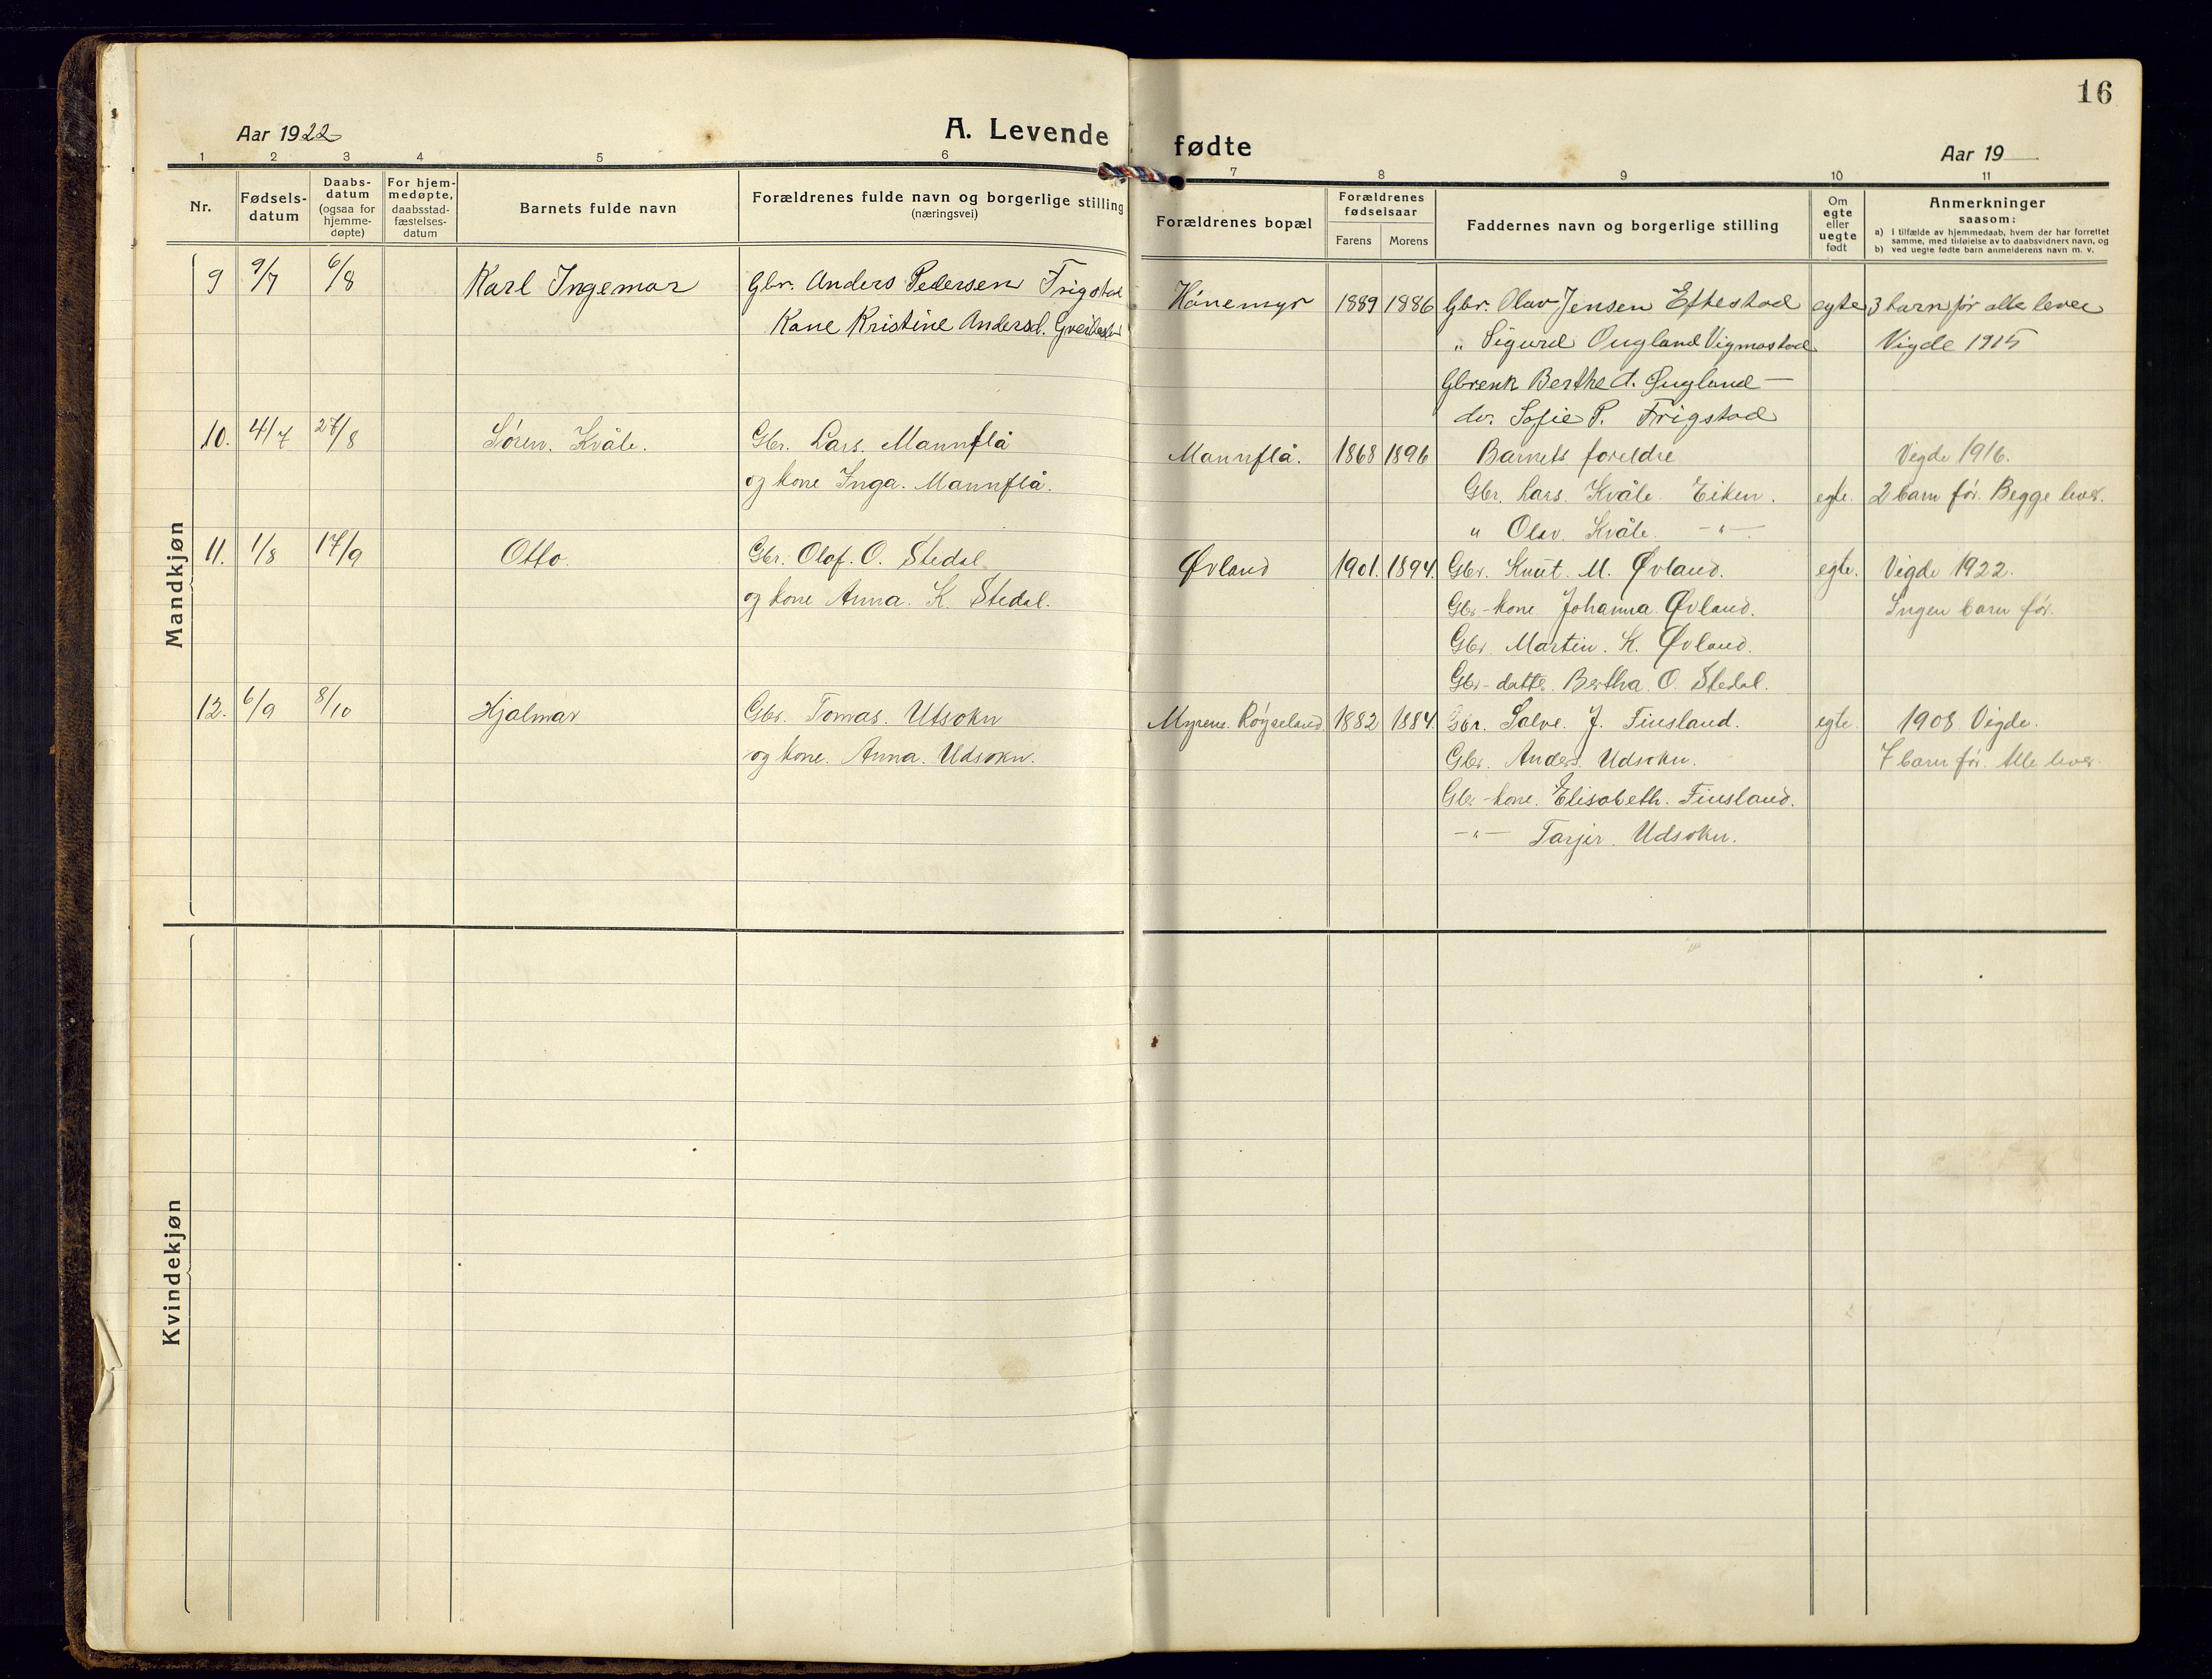 16
Aar 1922
A. Levende fødte
Aar 19
1 2 3 4 5 6 7 8 9 10 11
Nr.
Fødsels-
datum
Daabs-
datum
(ogsaa for
hjemme-
døpte)
For hjem-
medøpte,
daabsstad-
fæstelses-
datum
Barnets fulde navn
Forældrenes fulde navn og borgerlige stilling
(næringsvei)
Forældrenes bopæl
Forældrenes
fødselsaar
Farens Morens
Faddernes navn og borgerlige stilling
Om
egte
eller
uegte
født
Anmerkninger
saasom:
a) I tilfælde av hjemmedaab, hvem der har forrettet
samme, med tilføielse av to daabsvidners navn, og
b) ved uegte fødte barn anmelderens navn m. v.
Mandkjøn
9 9/7 6/8 Karl Ingemar Gbr. Anders Pedersen Frigstad Hønemyr 1889 1886 Gbr. Olav Jensen Eftestad egte 3 barn før alle lever
Kone Kristine Andersd. " Sigurd Ougland Vigmostad Vigde 1915
Gbrenk Berthe A. Ougland —
do. Sofie P. Frigstad
10. 4/7 27/8 Søren. Kvåle. Gbr. Lars. Mannflå Mannflå. 1868 1896 Barnets foreldre Vigde 1916.
og kone Inga. Mannflå. Gbr. Lars. Kvåle. Eiken. egte. 2 barn før. Begge lever.
" Olav. Kvåle. -"-
11. 1/8 17/9 Otto. Gbr. Olaf. O. Stedal. Øvland 1901. 1894. Gbr. Knut. M. Øvland. egte. Vigde 1922.
og kone Anna. K. Stedal. Gbr-kone Johanna Øvland. Ingen barn før.
Gbr. Martin. K. Øvland.
Gbr-datter. Bertha. O. Stedal.
12. 6/9 8/10 Hjalmar Gbr. Tomas. Utsokn Myrene. Røyseland. 1882 1884. Gbr. Salve. J. Finsland. egte. 1908 Vigde.
og kone. Anna. Udsokn. Gbr. Anders. Udsokn. 7 barn før. Alle lever.
Gbr-kone. Elisabeth. Finsland.
-"- Tarjer. Udsokn.
Kvindekjøn